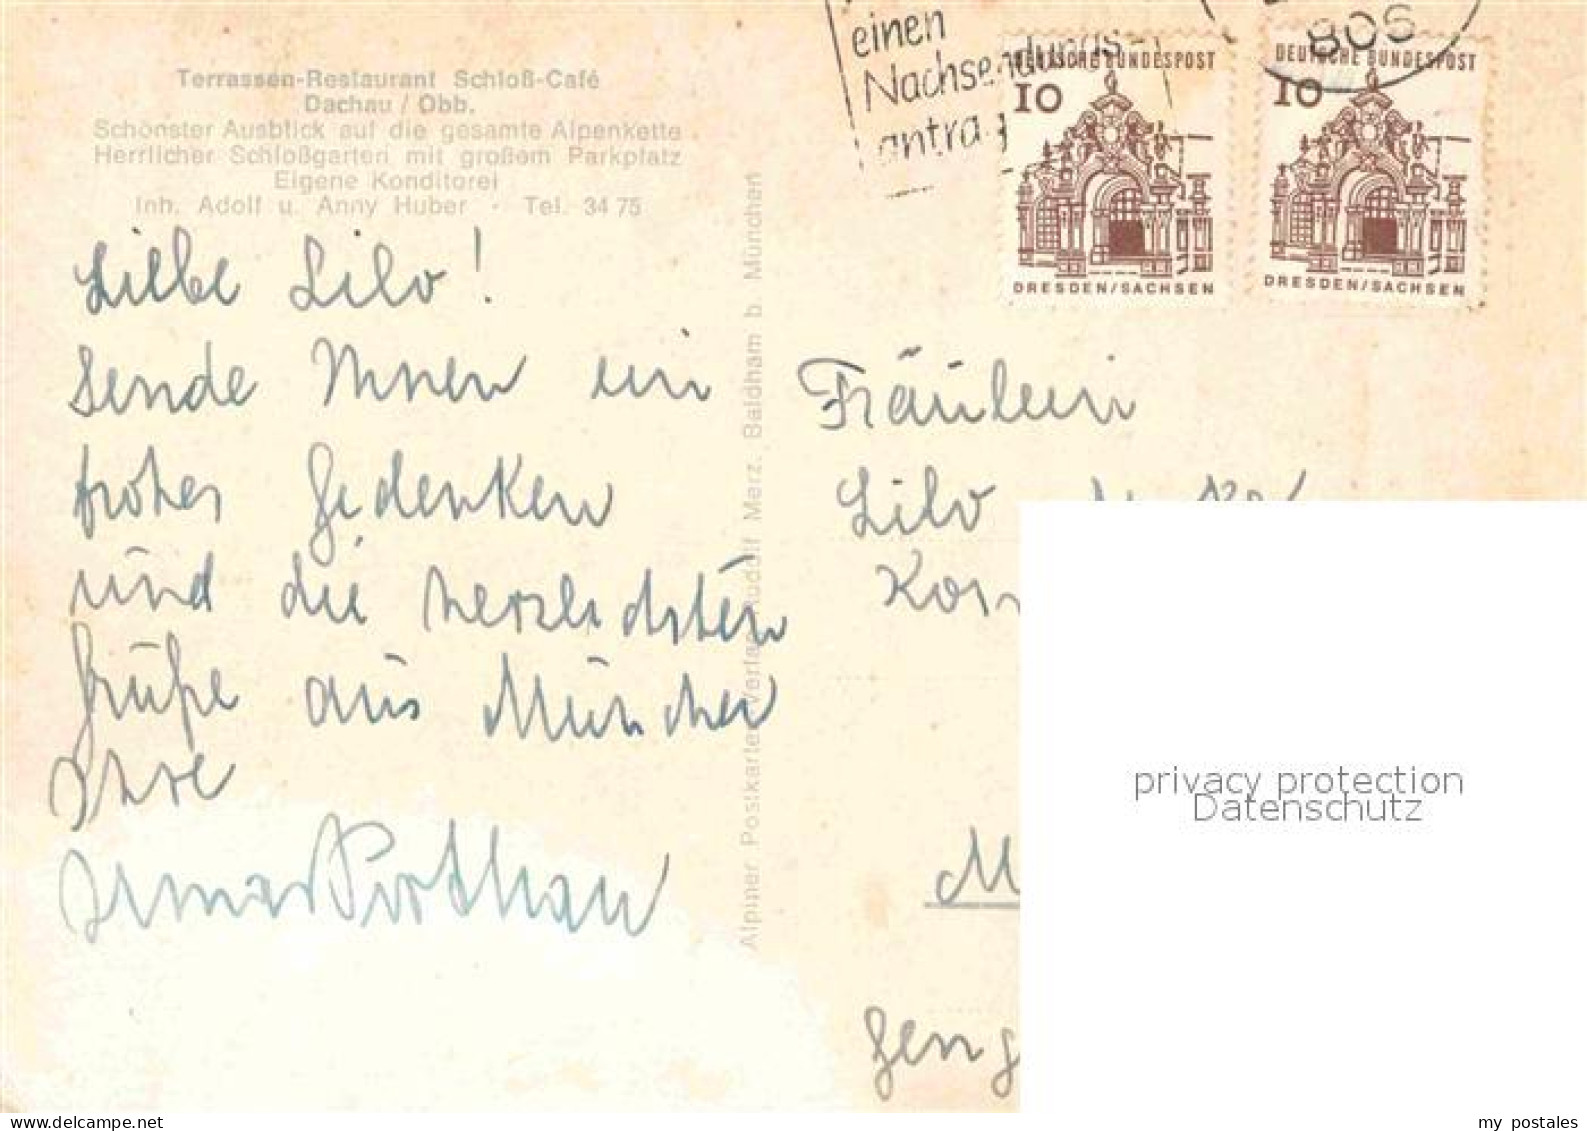 Terrassen-Restaurant Schloß-Café
Dachau / Obb.
Schönster Ausblick auf die gesamte Alpenkette
Herrlicher Schloßgarten mit großem Parkplatz
Eigene Konditorei
Inh. Adolf u. Anny Huber · Tel. 34 75
Liebe Lilo!
Sende Ihnen ein
frohes Gedenken
und die herzlichsten
Grüße aus München
Ihre
Irma
Alpiner Postkarten-Verlag Rudolf Merz, Baldham b. München
einen
Nachsendungs-
antrag
806
DEUTSCHE BUNDESPOST
10
DRESDEN/SACHSEN
DEUTSCHE BUNDESPOST
10
DRESDEN/SACHSEN
Fräulein
Lilo
M
Geng
privacy protection
Datenschutz
my postales